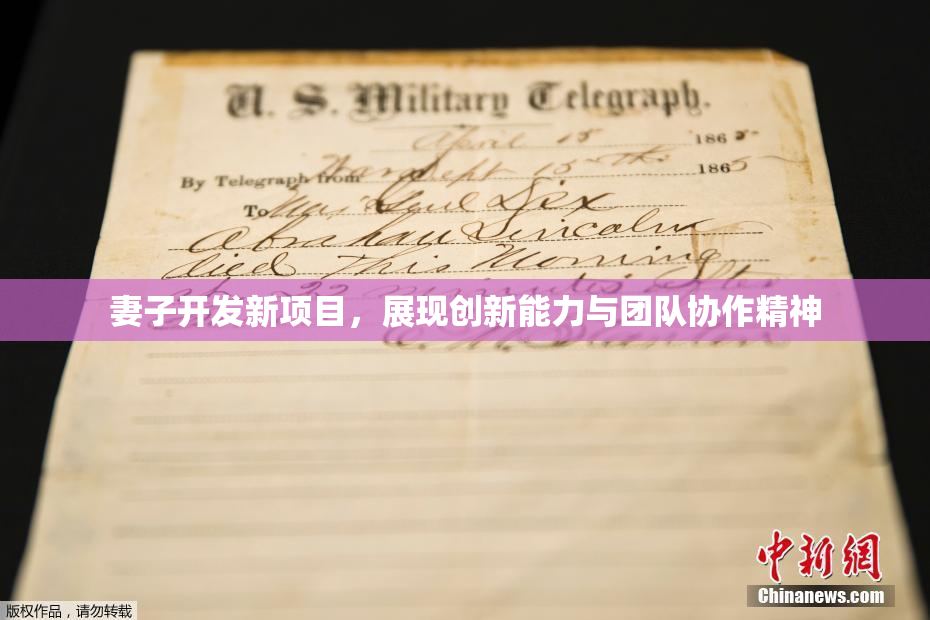 U. S. Military Telegraph.
April 15 1865
By Telegraph from War Dept 15th 1865
To Maj Genl Dix
Abraham Lincoln
died This Morning
22 minutes after
妻子开发新项目，展现创新能力与团队协作精神
中新网
Chinanews.com
版权作品，请勿转载